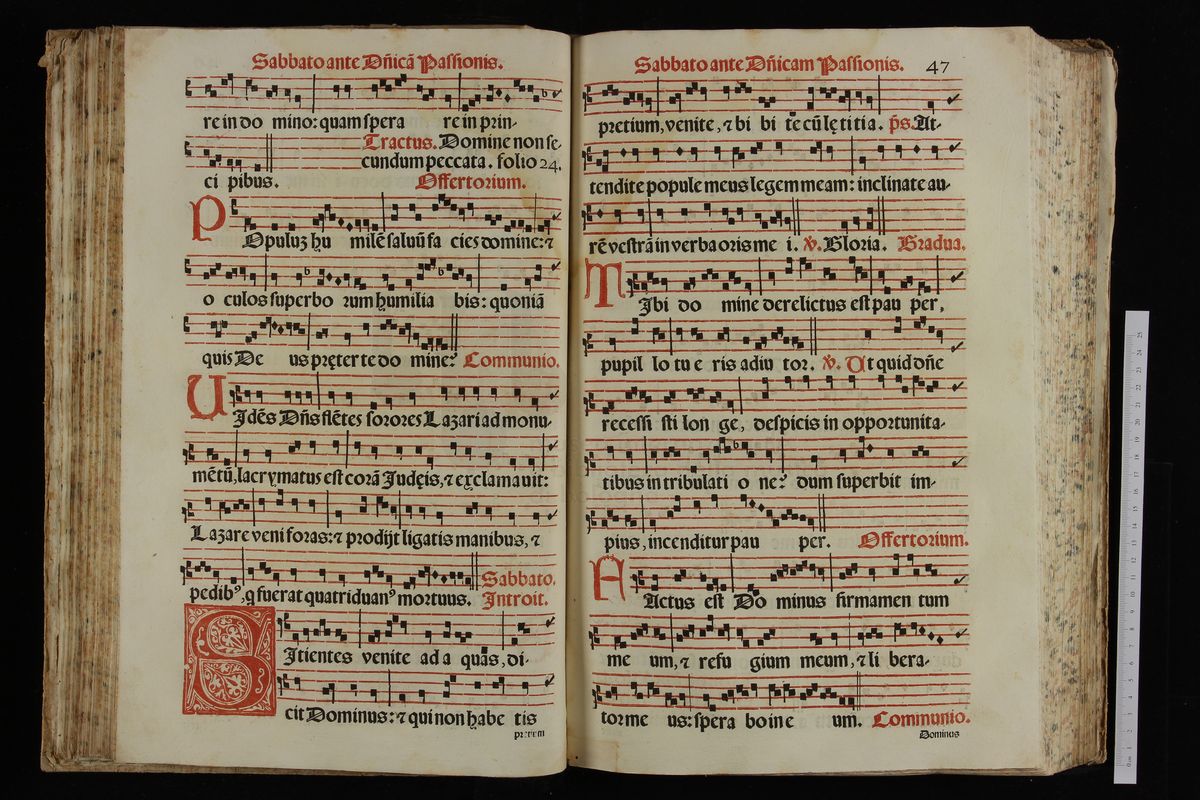 Sabbato ante Dñicã Passionis.
re in do mino: quam spera re in prin-
Tractus. Domine non se-
cundum peccata. folio 24.
ci pibus. Offertorium.
POpuluz hu milẽ saluũ fa cies domine: ⁊
o culos superbo rum humilia bis: quoniã
quis De us pręter te do mine? Communio.
VIdẽs Dñs flẽtes sorores Lazari ad monu-
mẽtũ, lacrymatus est corã Judęis, ⁊ exclamauit:
Lazare veni foras: ⁊ prodijt ligatis manibus, ⁊
pedibꝰ, q fuerat quatriduanꝰ mortuus. Sabbato.
Introit.
SItientes venite ad a quas, di-
cit Dominus: ⁊ qui non habe tis
pretium
Sabbato ante Dñicam Passionis. 47
pretium, venite, ⁊ bi bi te cũ lętitia. ps. At-
tendite popule meus legem meam: inclinate au-
rẽ vestrã in verba oris me i. ℣. Gloria. Gradua.
TIbi do mine derelictus est pau per,
pupil lo tu e ris adiu tor. ℣. Ut quid dñe
recessi sti lon ge, despicis in opportunita-
tibus in tribulati o ne? dum superbit im-
pius, incenditur pau per. Offertorium.
FActus est Do minus firmamen tum
me um, ⁊ refu gium meum, ⁊ li bera-
tor me us: spera bo in e um. Communio.
Dominus